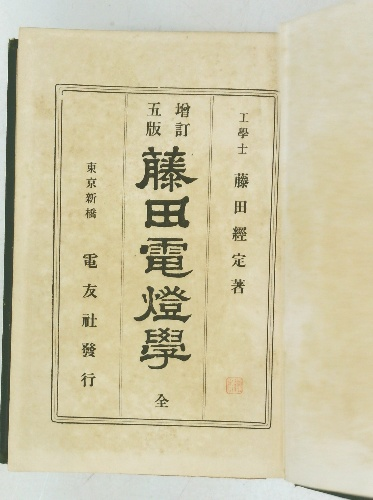 工學士 藤田經定著
增訂
五版
藤田電燈學 全
東京新橋 電友社發行